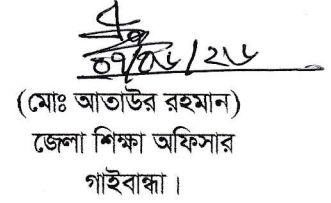 ০৭/০৬/২৬
(মোঃ আতাউর রহমান)
জেলা শিক্ষা অফিসার
গাইবান্ধা।